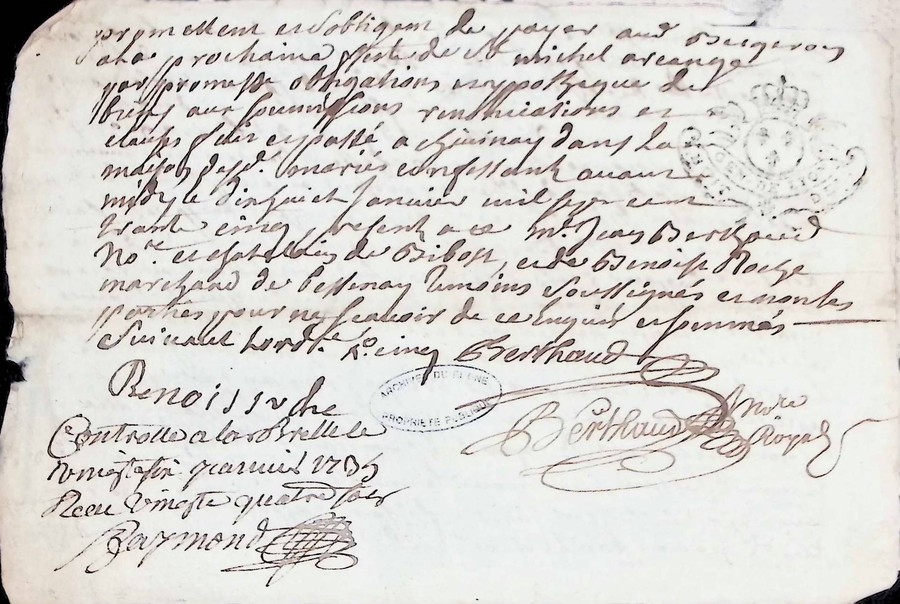 promettent et sobligent de payer aud Bergeron
a la prochaine feste de St michel arcange
par promesse obligations et ypotheque de
biens aux soumissions renonciations et
clauses fait et passé a chivinay dans la
maison desd. mariés confessants avant
midy le dix huict Janvier mil sept cent
trante cinq, present a ce Mr. Jean Berthaud
No.re et chatelain de Bibost, et de Benoist Roche
marchand de bessenay temoins soussignés et non les
parties pour ne scavoir de ce enquis et sommés
suivant lord.ce R. cinq Berthaud
Benoist
Controllé a la Brelle le
vingt six janvier 1735
Recu vingt quatre sols
Raymond
Berthaud Nore
Royal
ARCHIVES DU RHONE
PROPRIETE PUBLIQUE